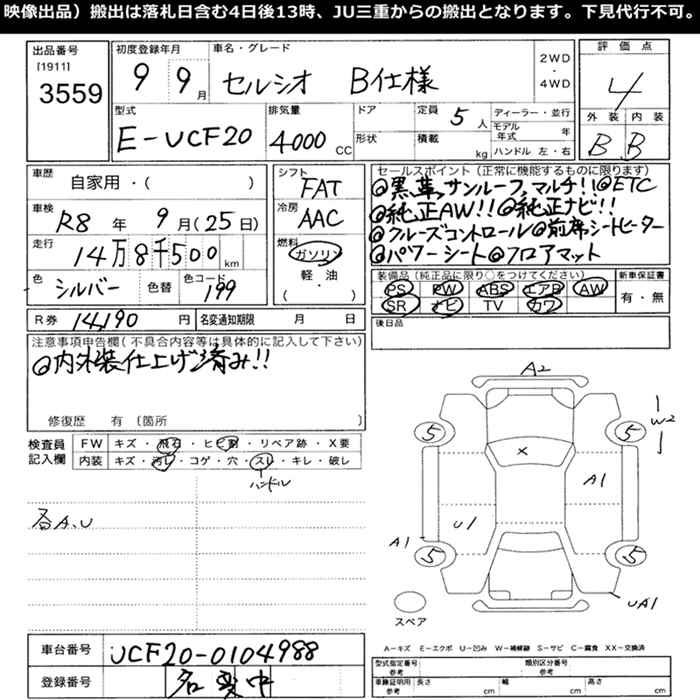 映像出品）搬出は落札日含む4日後13時、JU三重からの搬出となります。下見代行不可。
出品番号
[1911]
3559
初度登録年月
9 9月
車名・グレード
セルシオ B仕様
2WD
・
4WD
評価点
4
外装 内装
B B
型式
E-UCF20
排気量
4000 CC
ドア
形状
定員 5人
積載 kg
ディーラー・並行
モデル年式 年
ハンドル 左・右
車歴
自家用・( )
車検
R8年 9月(25日)
走行
14万8千500km
色
シルバー
色替
色コード
199
シフト
FAT
冷房
AAC
燃料
ガソリン
軽・油
( )
セールスポイント（正常に機能するものに限ります）
@黒革,サンルーフ,マルチ!!@ETC
@純正AW!!@純正ナビ!!
@クルーズコントロール@前席シートヒーター
@パワーシート@フロアマット
装備品（純正品に限り○をつけてください）
PS PW ABS エアB AW
SR ナビ TV カワ
新車保証書
有・無
R券 14,190円
名変通知期限 月 日
後日品
注意事項申告欄（不具合内容等は具体的に記入して下さい）
@内外装仕上げ済み!!
修復歴 有 〔箇所 〕
検査員
記入欄
FW キズ・飛石・ヒビ割・リペア跡・X要
内装 キズ・汚レ・コゲ・穴・スレ・キレ・破し
ハンドル
各A.U
A2
5 5
W2
X
A1
U1
A1
5 5
UA1
スペア
A−キズ E−エクボ U−凹み W−補修跡 S−サビ C−腐食 XX−交換済
車台番号
UCF20-0104988
登録番号
名変中
型式指定番号
参考
類別区分番号
参考
車庫証明用
参考
長さ cm
幅 cm
高さ cm